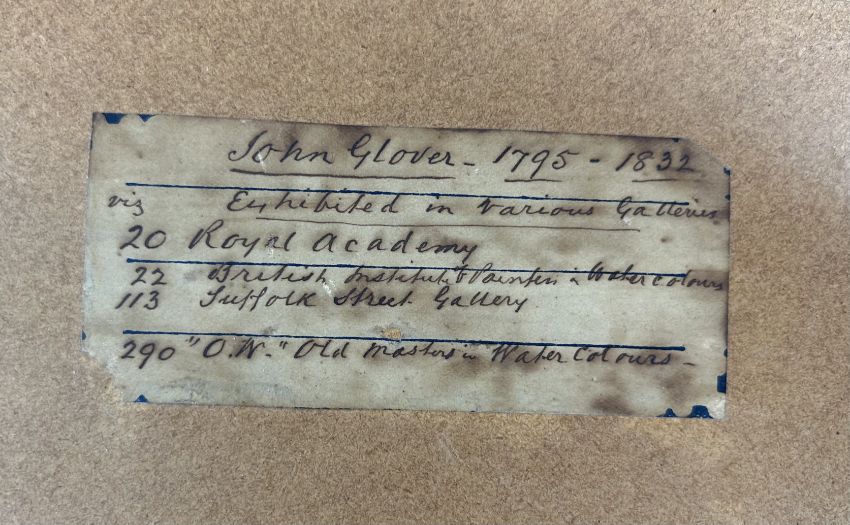 John Glover - 1795 - 1832
viz Exhibited in various Galleries
20 Royal Academy
22 British Institut: & Painters in Water colours
113 Suffolk Street Gallery
290 "O.W." Old masters in Water Colours -